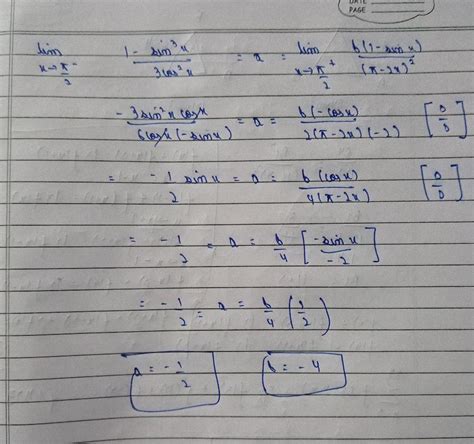 DATE
PAGE
lim x→π/2⁻ (1 - sin³x)/(3cos²x) = a = lim x→π/2⁺ b(1 - sin x)/(π - 2x)²
(-3sin²x cosx)/(6cosx(-sinx)) = a = b(-cosx)/(2(π-2x)(-2)) [0/0]
= -1/2 sinx = a = b(cosx)/(4(π-2x)) [0/0]
= -1/2 = a = b/4 [-sinx/-2]
= -1/2 = a = b/4 (1/2)
a = -1/2 b = -4